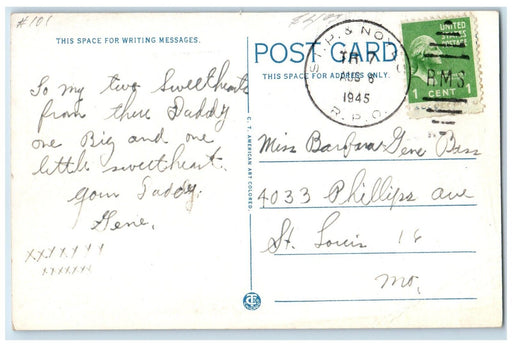 #101
THIS SPACE FOR WRITING MESSAGES.
To my two Sweethearts
from there Daddy
one Big and one
little sweetheart.
Your Daddy.
Gene.
xxxxxxx
xxxxxxx
C. T. AMERICAN ART COLORED.
POST CARD
THIS SPACE FOR ADDRESS ONLY.
TR 7
AUG 9
1945
R.P.O.
UNITED
STATES
POSTAGE
R.M.S
1 CENT 1
Miss Barbara Gene Biss
4033 Phillips ave
St. Louis 16
Mo.